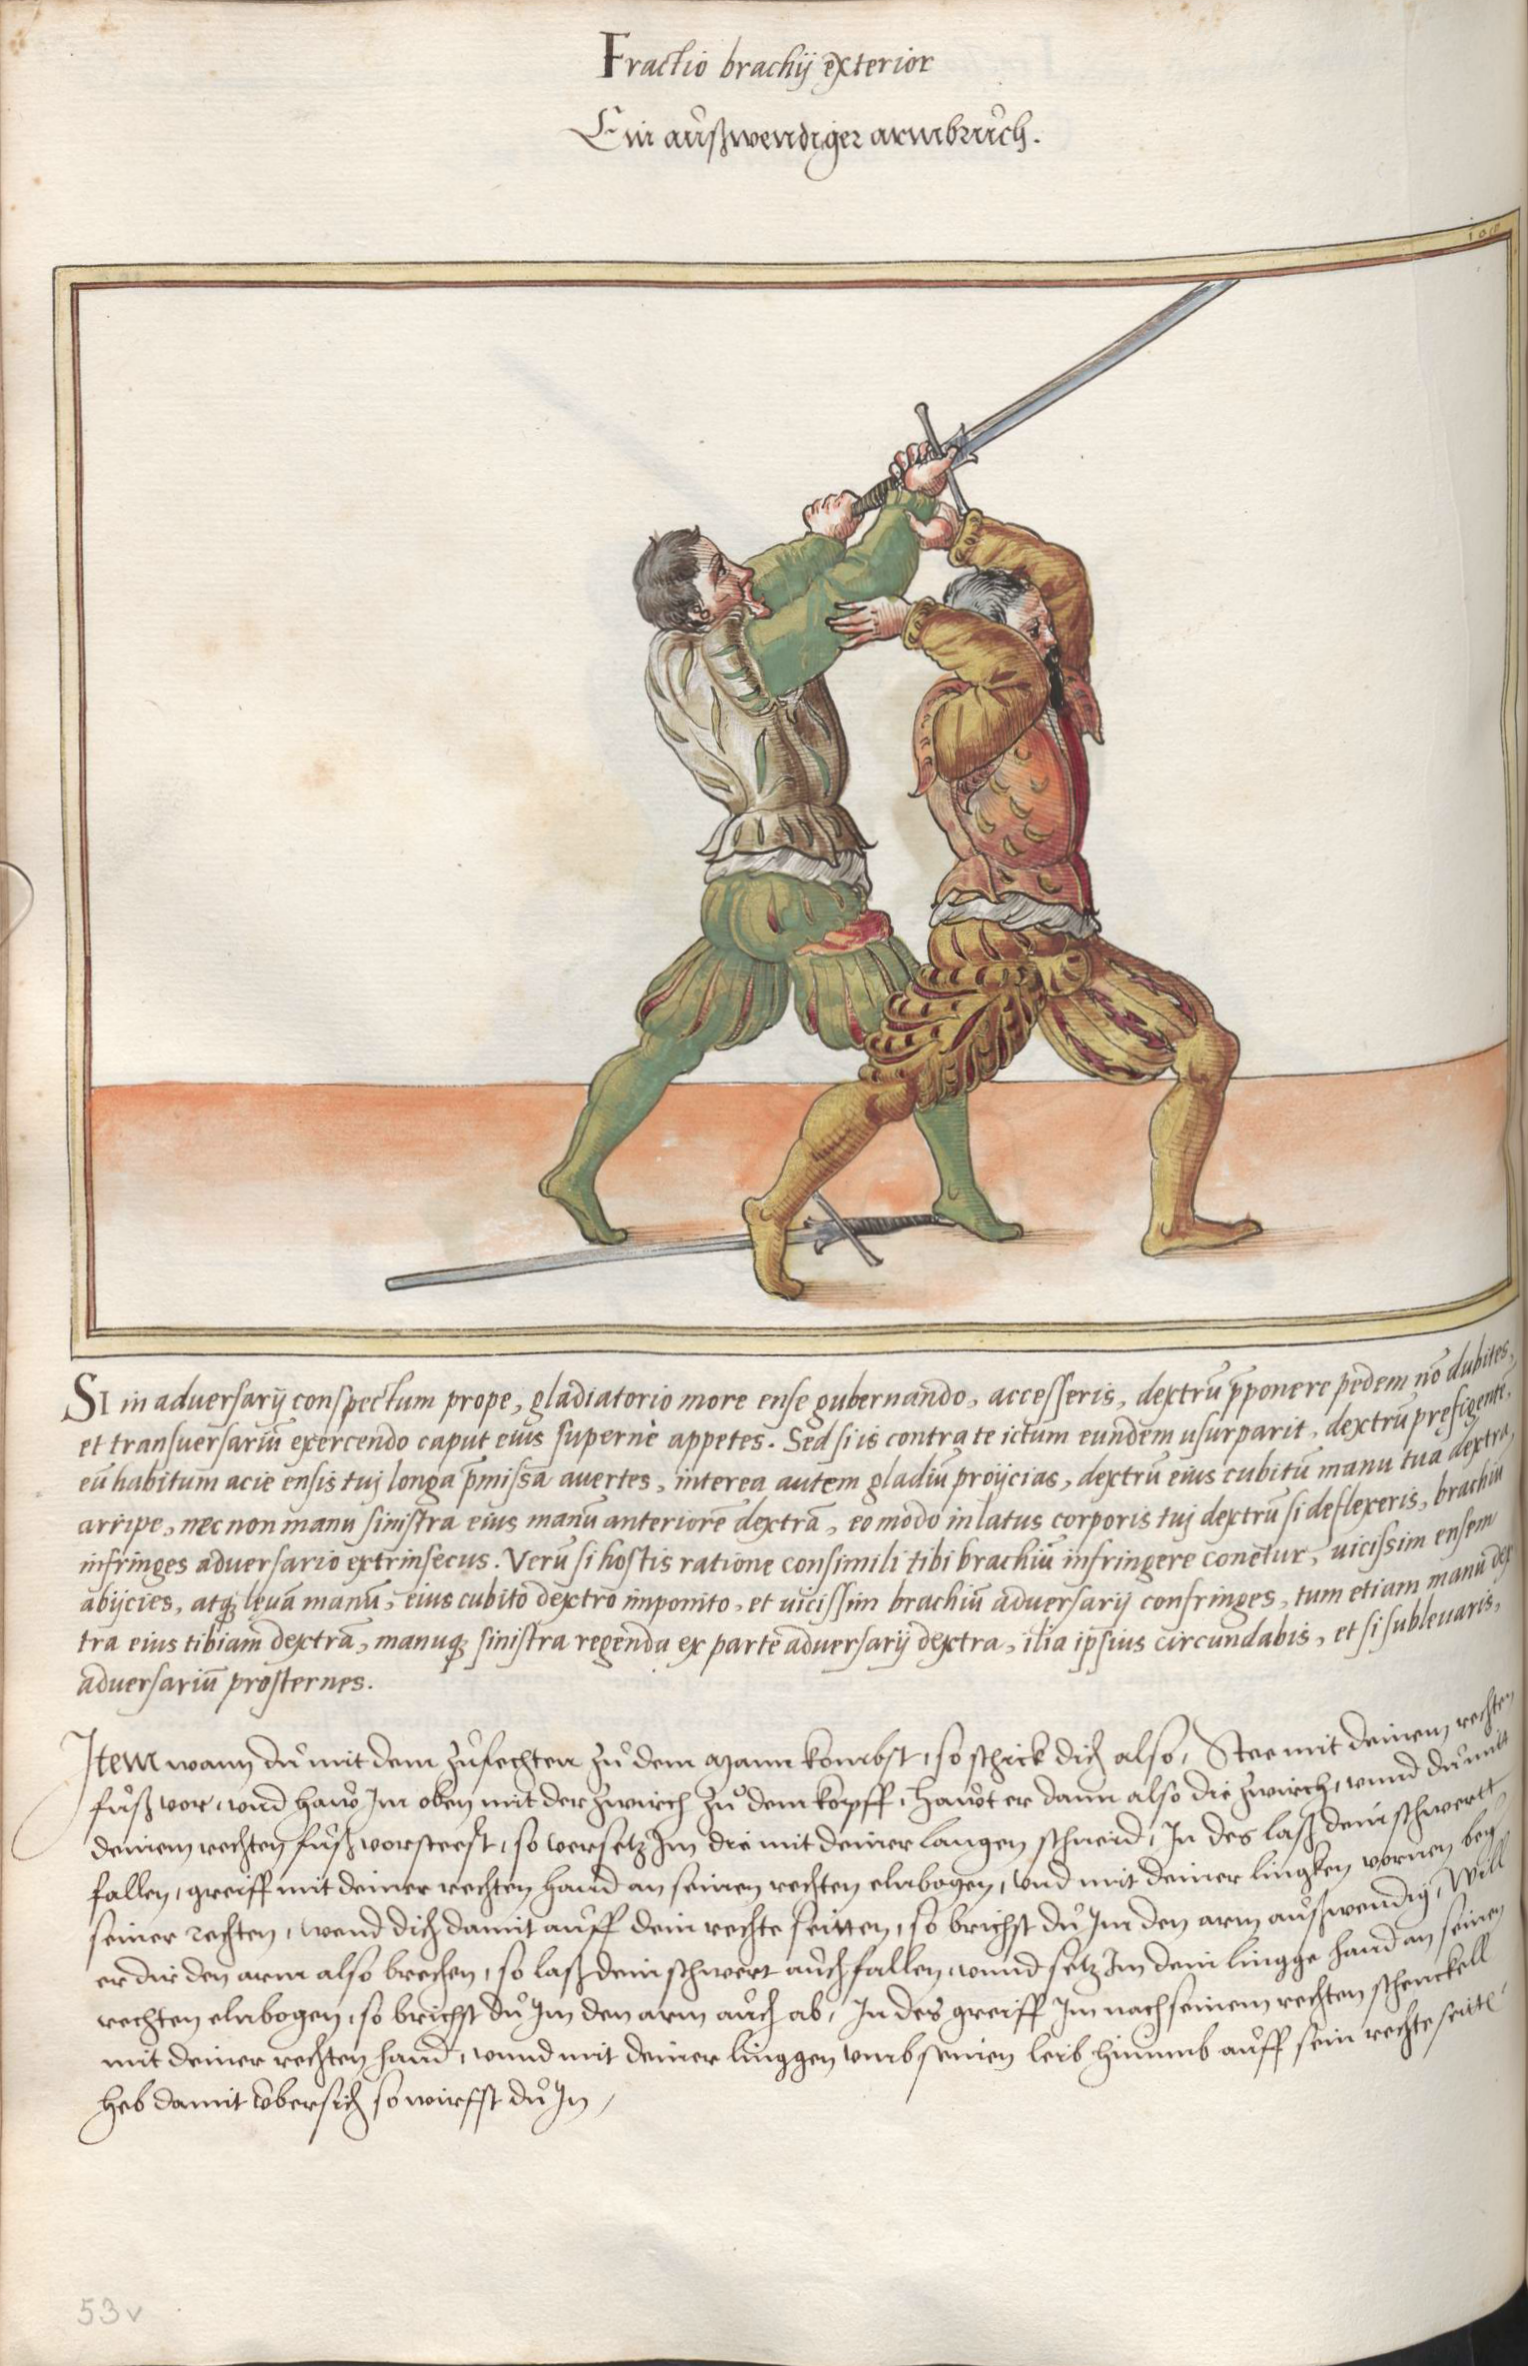 Fractio brachij exterior
Ein aůßwendiger armbrůch.
Si in aduersarij conspectum prope, gladiatorio more ense gubernando, accesseris, dextrũ p̃ponere pedem nõ dubites,
et transuersariũ exercendo caput eius supernè appetes. Sed si is contra te ictum eundem usurparit, dextrũ prefigentẽ,
eũ habitum acie ensis tuj longa p̃missa auertes, interea autem gladiũ proijcias, dextrũ eius cubitũ manu tua dextra,
arripe, nec non manu sinistra eius manũ anteriorẽ dextrã, eo modo in latus corporis tuj dextrũ si deflexeris, brachiũ
infringes aduersario extrinsecus. Verũ si hostis ratione consimili tibi brachiũ infringere conetur, uicissim ensem
abijcies, atq; leuã manũ, eius cubito dextro imponito, et uicissim brachiũ aduersarij confringes, tum etiam manu dex
tra eius tibiam dextrã, manuq; sinistra regenda ex parte aduersarij dextra, ilia ipsius circundabis, et si subleuaris,
aduersariũ prosternes.
Item wann dů mit dem zůfechten zů dem mann kombst, so schick dich also, Stee mit deinem rechten
fůß vor, vnd haw Im oben mit der zwirch zů dem kopff, hawt er dann also die zwirch, vnnd dů mit
deinem rechten fůß vorsteest, so versetz Im die mit deiner langen schneid, In des laß dein schwertt
fallen, greiff mit deiner rechten hand an seinen rechten elnbogen, vnd mit deiner lingken vornen bey
seiner rechten, wend dich damit aůff dein rechte seitten, so brichst dů Im den arm aůßwendig, Will
er dir den arm also brechen, so laß dein schwert aůch fallen, vnnd setz Im dein lingge hand an seinen
rechten elnbogen, so brichst dů Im den arm aůch ab, In des greiff Im nach seinem rechten schenckell
mit deiner rechten hand, vnnd mit deiner linggen vmb seinen leib hinumb aůff sein rechte seitte
heb damit vbersich so wirfst dů In,
53v